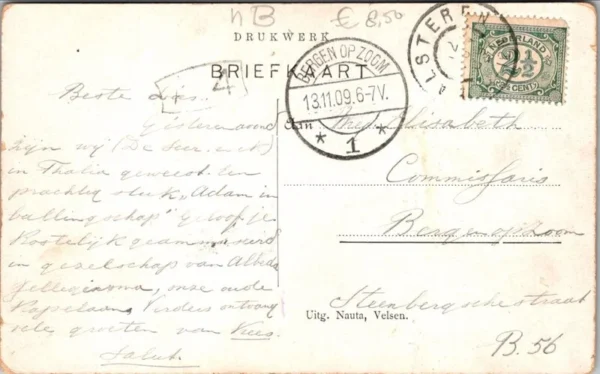 nB € 8,50
DRUKWERK
BRIEFKAART
4
BERGEN OP ZOOM
13.11.09.6-7V.
* 1 *
NEDERLAND
2½
CENT
Beste
Gisteren avond
zijn wij (De Heer en ik)
in Thalia geweest. Een
prachtig stuk „Adam in
ballingschap" geloof je
Kostelijk geamuseerd
in gezelschap van Albeda
Jellegiasma, onze oude
Kapelaan. Verders ontvang
vele groeten van Kees.
Salut.
Aan Mej. Elisabeth
Commissaris
Bergen op Zoom
Steenbergschestraat
B. 56
Uitg. Nauta, Velsen.